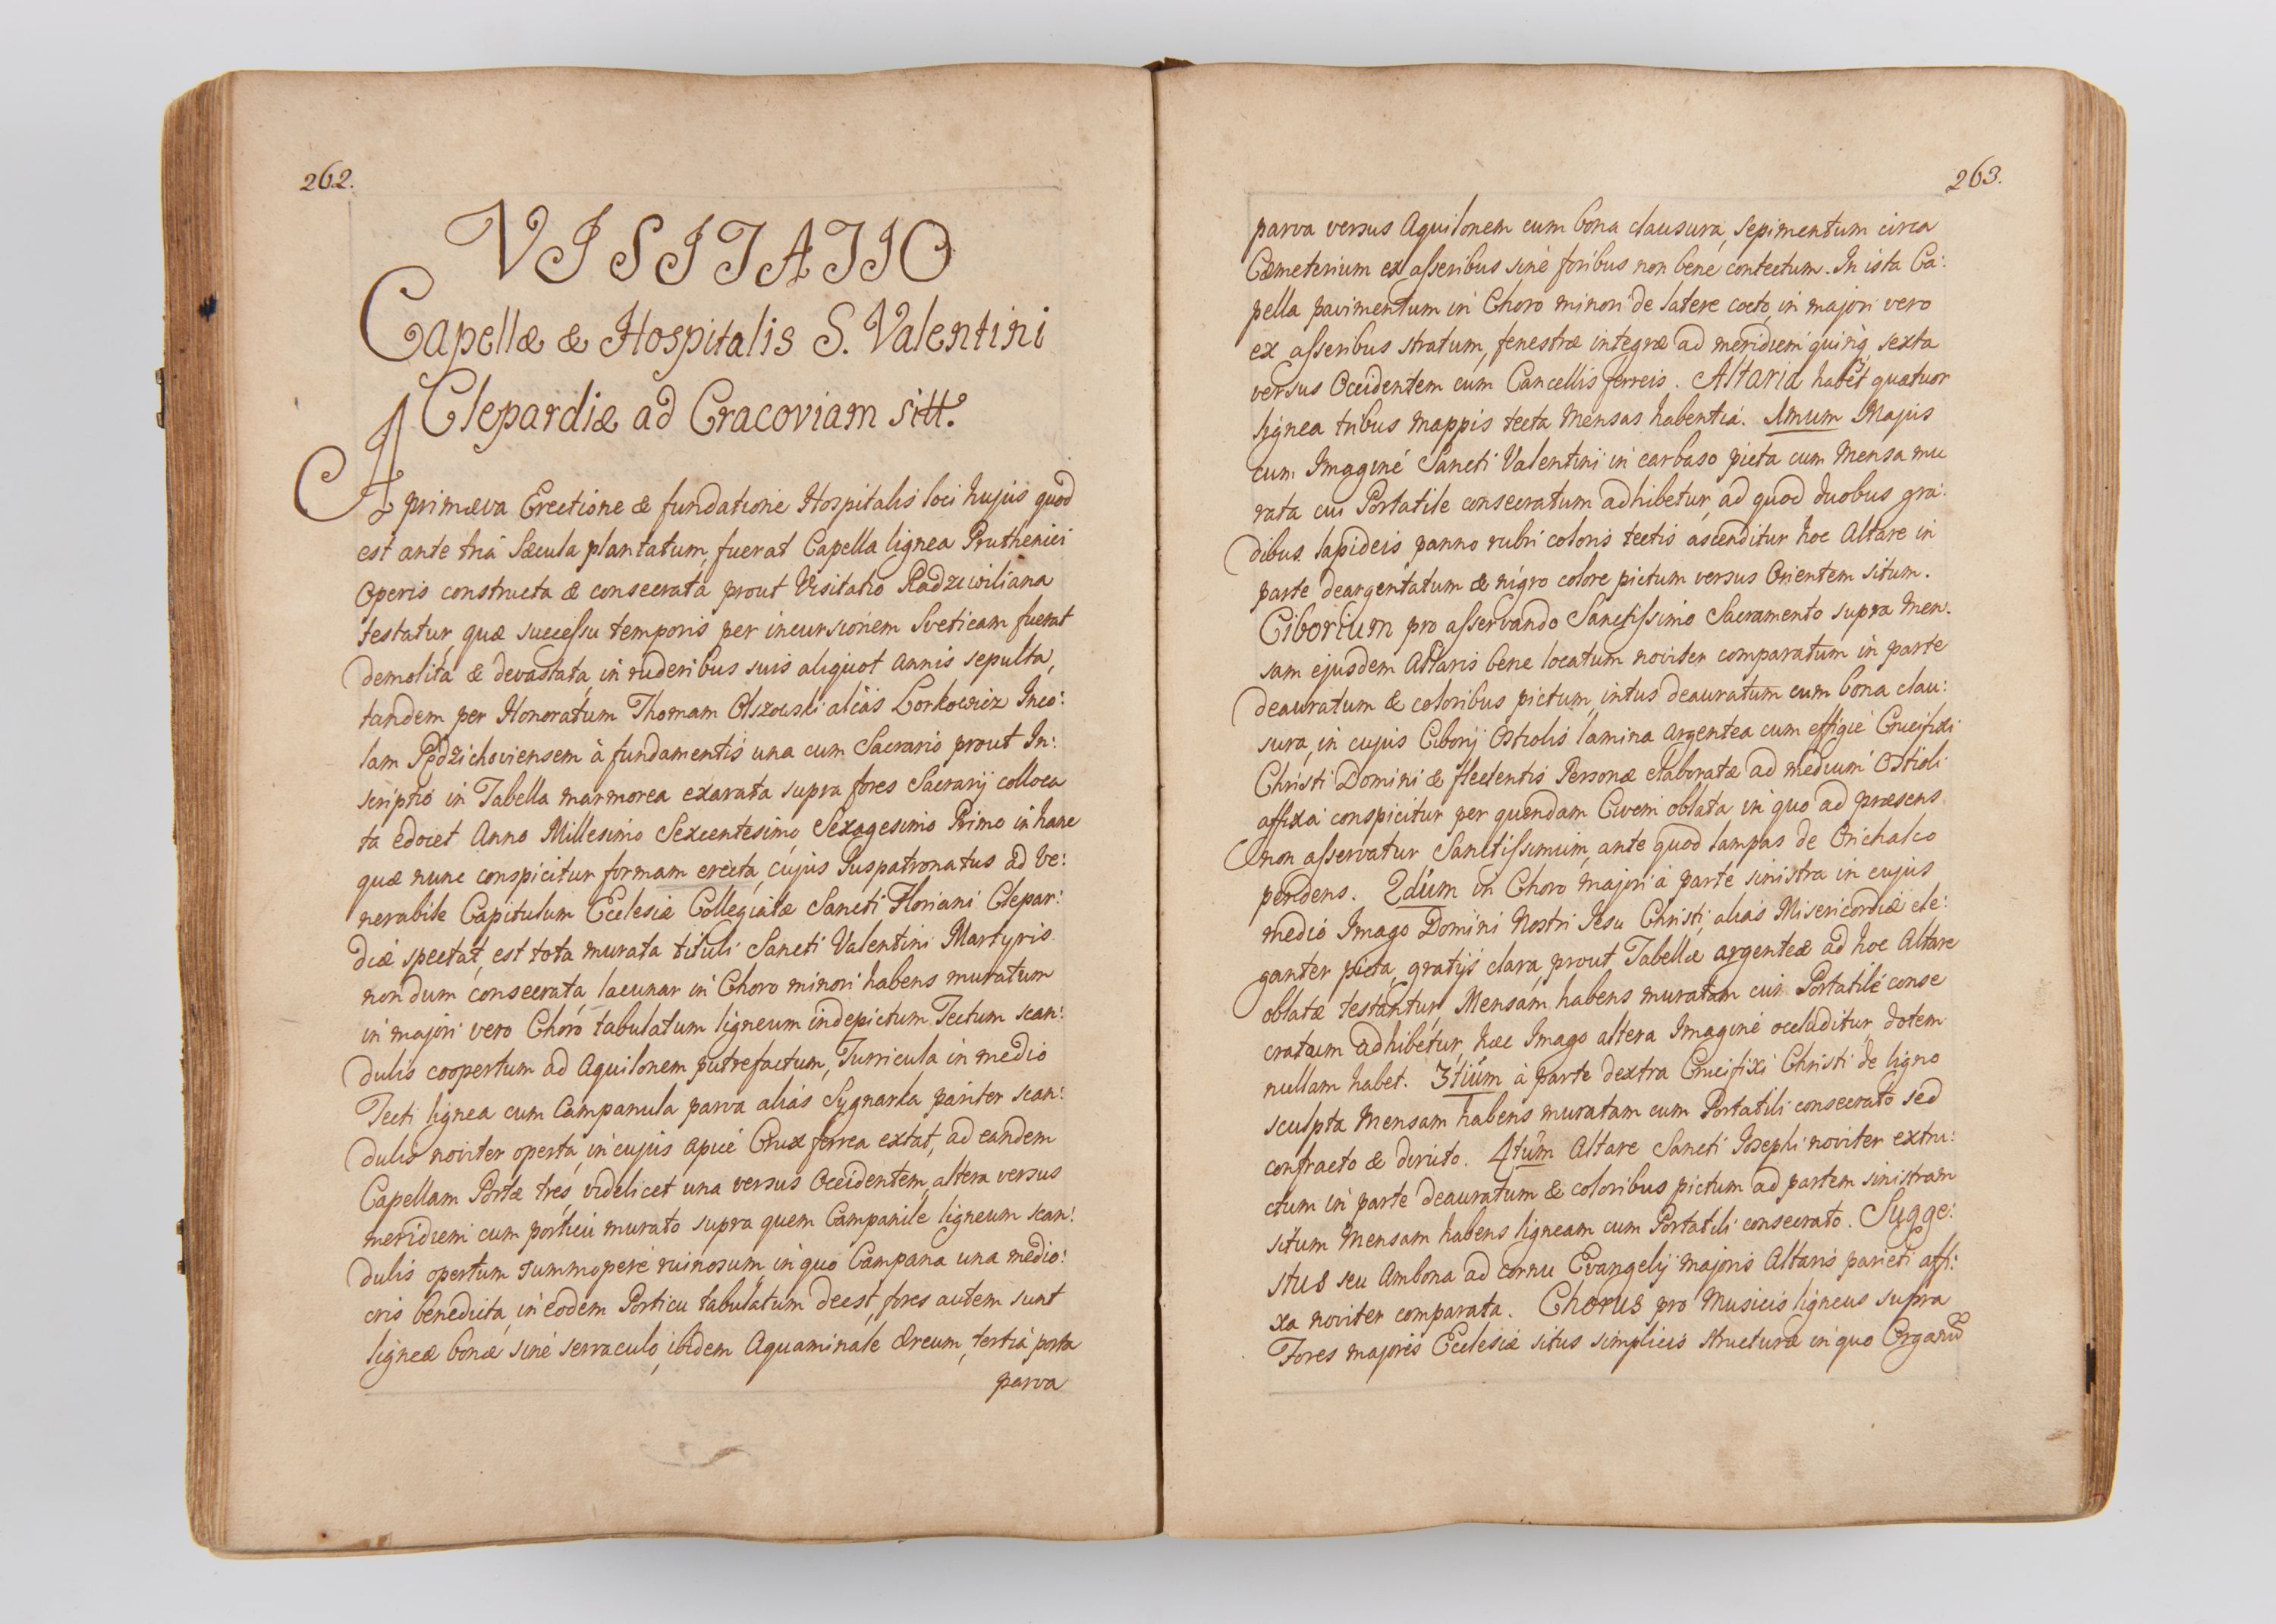 262.
VISITATIO
Capellæ & Hospitalis S. Valentini
Clepardiæ ad Cracoviam sitt.
A primæva Erectione & fundatione Hospitalis loci hujus quod
est ante tria Sæcula plantatum, fuerat Capella lignea Pruthenici
Operis constructa & consecrata prout Visitatio Radziwiliana
testatur, quæ successu temporis per incursionem Sveticam fuerat
demolita & devastata, in ruderibus suis aliquot annis sepulta,
tandem per Honoratum Thomam Olszowski alias Lorkowicz Inco:
lam Pędzichoviensem à fundamentis una cum Sacrario prout In:
scriptio in Tabella marmorea exarata supra fores Sacrarij colloca
ta edocet Anno Millesimo Sexcentesimo Sexagesimo Primo in hanc
quæ nunc conspicitur formam erecta, cujus Juspatronatus ad Ve:
nerabile Capitulum Ecclesiæ Collegiatæ Sancti Floriani Clepar:
diæ spectat, est tota murata tituli Sancti Valentini Martyris
non dum consecrata, lacunar in Choro minori habens muratum
in majori vero Choro tabulatum ligneum indepictum. Tectum scan:
dulis coopertum ad Aquilonem putrefactum, Turricula in medio
Tecti lignea cum Campanula parva alias Sygnarka pariter scan:
dulis noviter operta, in cujus apice Crux ferrea extat, ad eandem
Capellam Portæ tres, videlicet una versus Occidentem, altera versus
meridiem cum porticu murato supra quem Campanile ligneum scan:
dulis opertum summopere ruinosum in quo Campana una medio:
cris benedicta, in eodem Porticu tabulatum deest, fores autem sunt
ligneæ bonæ sine serraculo, ibidem Aquaminale Æreum, tertia porta
parva
263.
parva versus Aquilonem cum bona clausura, sepimentum circa
Cæmeterium ex asseribus sine foribus non bene contectum. In ista Ca:
pella pavimentum in Choro minori de latere cocto, in majori vero
ex asseribus stratum, fenestræ integræ ad meridiem quinq, sexta
versus Occidentem cum Cancellis ferreis. Altaria habet quatuor
lignea tribus mappis tecta Mensas habentia. 1mum Majus
cum Imagine Sancti Valentini in carbaso picta cum Mensa mu
rata cui Portatile consecratum adhibetur, ad quod duobus gra:
dibus lapideis panno rubri coloris tectis ascenditur hoc Altare in
parte deargentatum & nigro colore pictum versus Orientem situm.
Ciborium pro asservando Sanctissimo Sacramento supra Men.
sam ejusdem Altaris bene locatum noviter comparatum in parte
deauratum & coloribus pictum, intus deauratum cum bona clau:
sura, in cujus Ciborij Ostiolis lamina argentea cum effigie Crucifixi
Christi Domini & flectentis Personæ elaboratæ ad medium Ostioli
affixa conspicitur per quendam Civem oblata in quo ad præsens
non asservatur Sanctissimum, ante quod lampas de Orichalco
pendens. 2dum in Choro majori à parte sinistra in cujus
medio Imago Domini Nostri Jesu Christi, alias Misericordiæ ele:
ganter picta, gratijs clara, prout Tabellæ argenteæ ad hoc Altare
oblatæ testantur, Mensam habens muratam cui Portatile conse
cratum adhibetur, hæc Imago altera Imagine occluditur, dotem
nullam habet. 3tium à parte dextra Crucifixi Christi de ligno
sculpta Mensam habens muratam cum Portatili consecrato sed
confracto & diruto. 4tum Altare Sancti Josephi noviter extru:
ctum in parte deauratum & coloribus pictum ad partem sinistram
situm Mensam habens ligneam cum Portatili consecrato. Sugge:
stus seu Ambona ad cornu Evangelij majoris Altaris parieti affi:
xa noviter comparata. Chorus pro Musicis ligneus supra
Fores majoris Ecclesiæ situs simplicis structuræ in quo Organũ